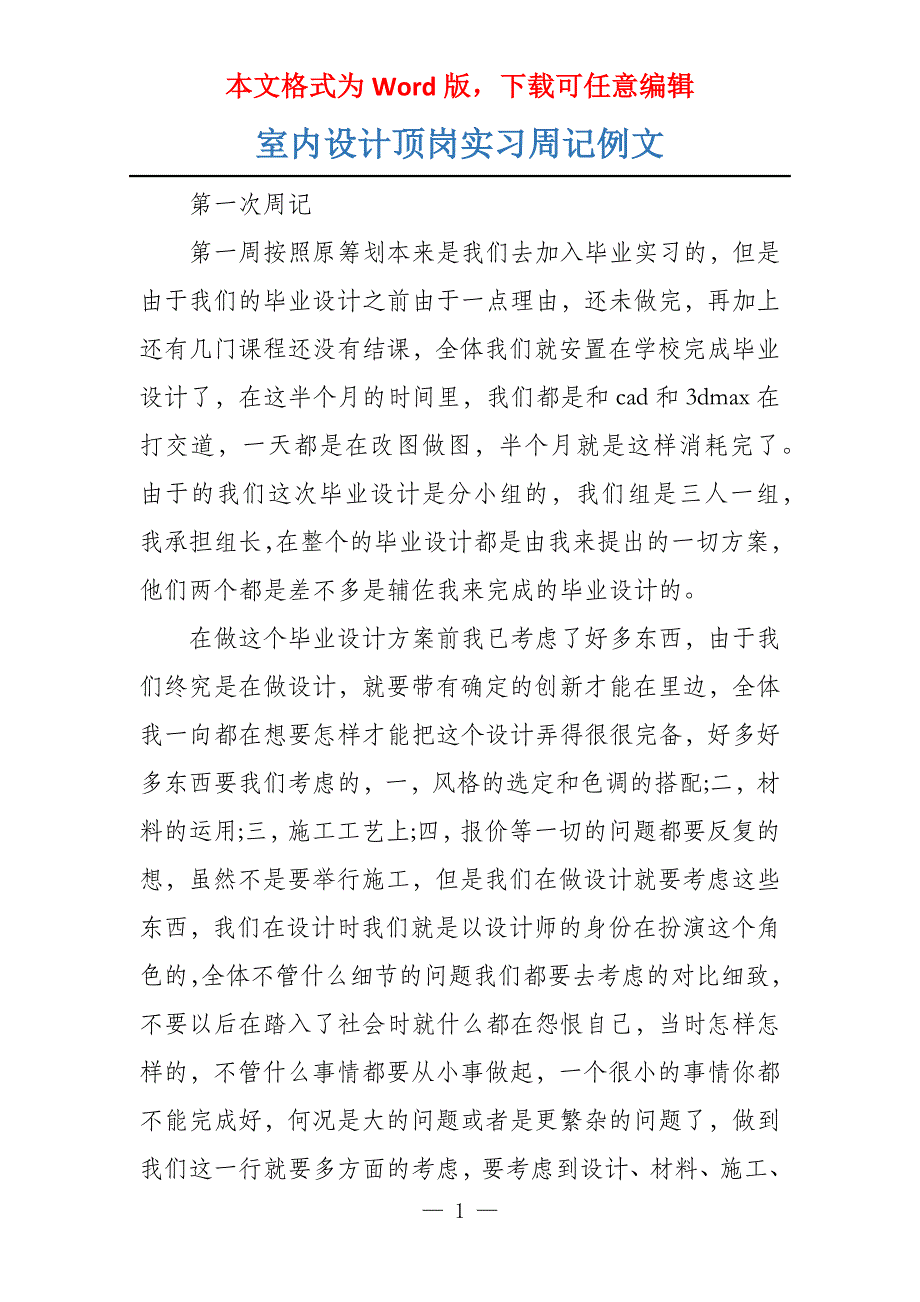 本文格式为 Word 版，下载可任意编辑
室内设计顶岗实习周记例文
第一次周记
第一周按照原筹划本来是我们去加入毕业实习的，但是
由于我们的毕业设计之前由于一点理由，还未做完，再加上
还有几门课程还没有结课，全体我们就安置在学校完成毕业
设计了，在这半个月的时间里，我们都是和 cad 和 3dmax 在
打交道，一天都是在改图做图，半个月就是这样消耗完了。
由于的我们这次毕业设计是分小组的，我们组是三人一组，
我承担组长,在整个的毕业设计都是由我来提出的一切方案，
他们两个都是差不多是辅佐我来完成的毕业设计的。
在做这个毕业设计方案前我已考虑了好多东西，由于我
们终究是在做设计，就要带有确定的创新才能在里边，全体
我一向都在想要怎样才能把这个设计弄得很很完备，好多好
多东西要我们考虑的，一，风格的选定和色调的搭配;二，材
料的运用;三，施工工艺上;四，报价等一切的问题都要反复的
想，虽然不是要举行施工，但是我们在做设计就要考虑这些
东西，我们在设计时我们就是以设计师的身份在扮演这个角
色的,全体不管什么细节的问题我们都要去考虑的对比细致，
不要以后在踏入了社会时就什么都在怨恨自己，当时怎样怎
样的，不管什么事情都要从小事做起，一个很小的事情你都
不能完成好，何况是大的问题或者是更繁杂的问题了，做到
我们这一行就要多方面的考虑，要考虑到设计、材料、施工、
— 1 —